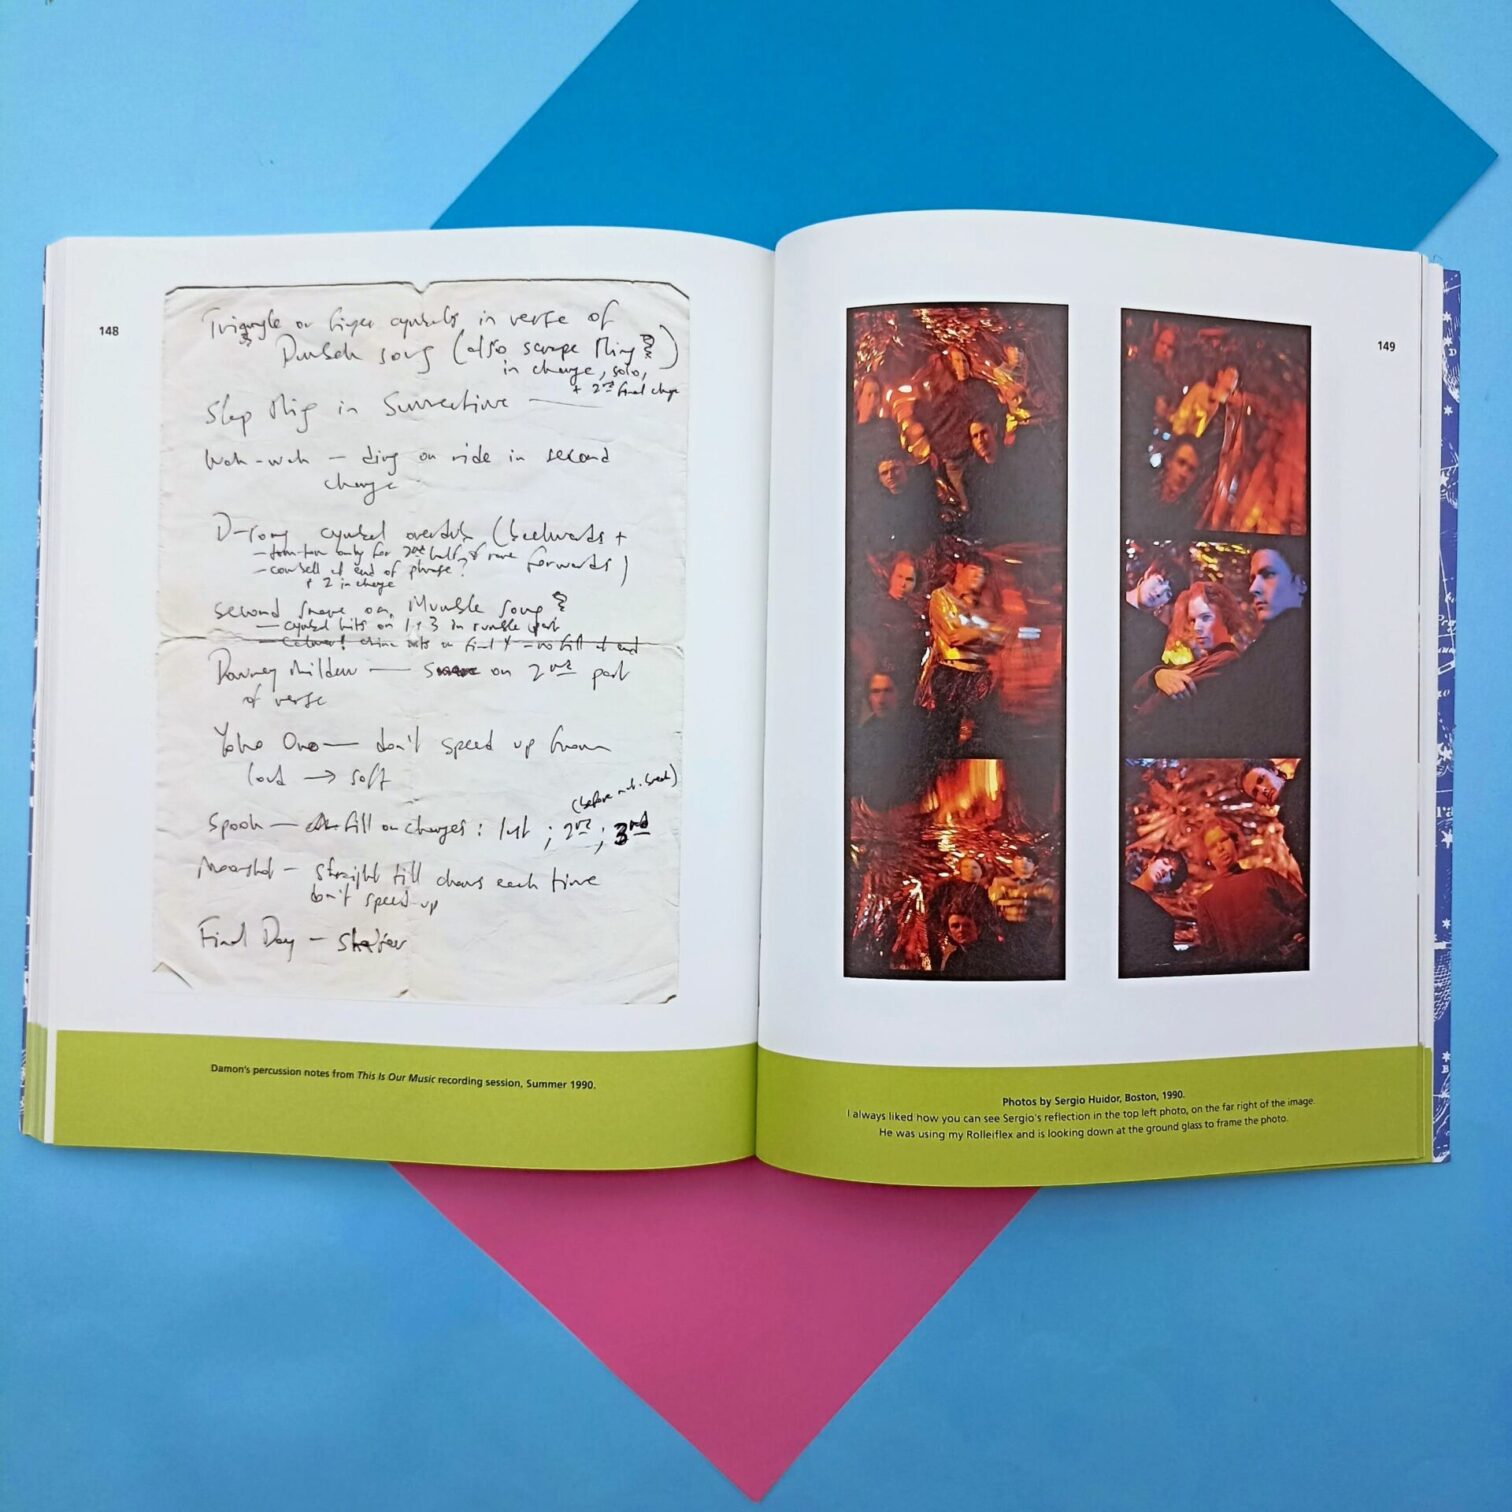 148
Triangle or finger cymbals in verse of
song (also scrape thing
in change, solo,
+ 2nd final change
thing in Summertime —
Wah-wah — ding on ride in second
change
cymbal overdub (backwards +
forwards)
— tom-tom only for 2nd half of
— cowbell at end of phrase?
+ 2 in change
second snare on song
— cymbal hits on 1 + 3 in part
— no fill at end
— on 2nd part
of verse
Yoko Ono — don't speed up from
loud → soft
(before
Spook — fill on changes: 1st; 2nd; 3rd
— straight till each time
don't speed up
Final Day — shaker
Damon's percussion notes from This Is Our Music recording session, Summer 1990.
149
Photos by Sergio Huidor, Boston, 1990.
I always liked how you can see Sergio's reflection in the top left photo, on the far right of the image.
He was using my Rolleiflex and is looking down at the ground glass to frame the photo.